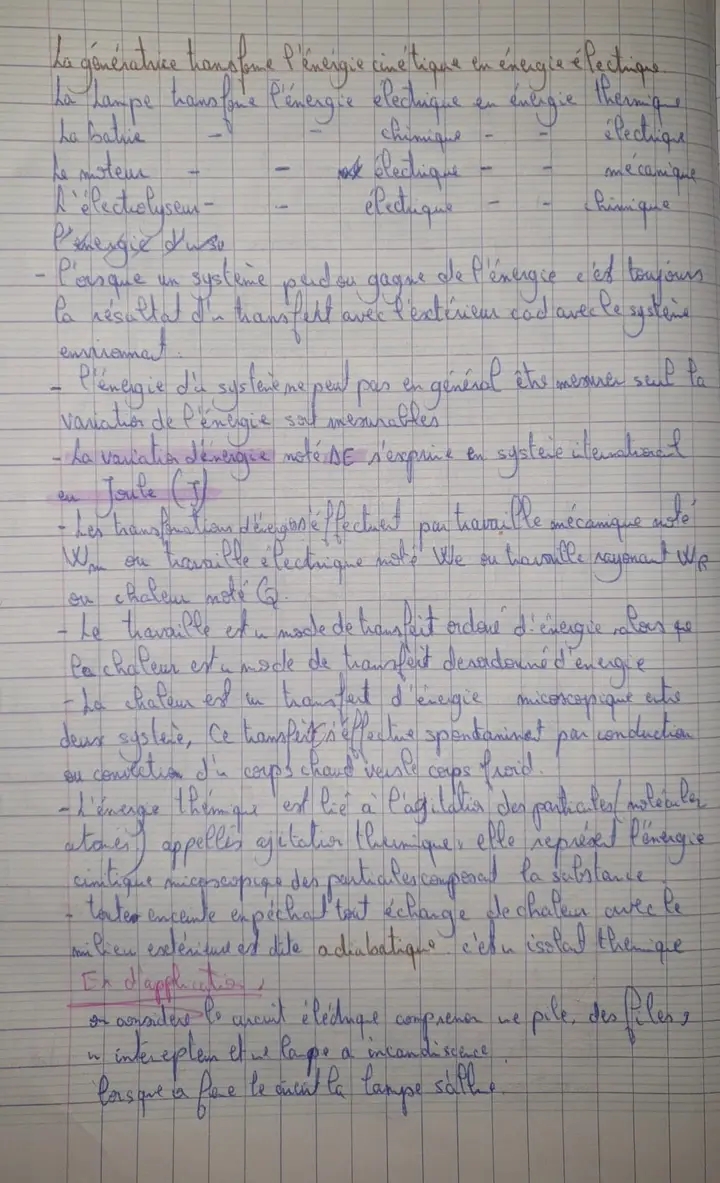 La génératrice transforme l'énergie cinétique en énergie électrique
La Lampe transfome l'énergie électrique en énergie thermique
La batrie - - chimique - - électrique
Le moteur - - électrique - - mécanique
L'électrolyseur - - électrique - - chimique
l'énergie d'une
- l'orsque un système perd ou gagne de l'énergie c'est toujours
la résultat d'un transfert avec l'extérieur cad avec le système
environnat.
- l'énergie d'u système ne peut pas en général être mesurer seul la
variation de l'énergie soit mesurables
- La variation d'énergie noté ΔE s'exprime en systeie iternational
en Joule (J)
- Les transfmations d'énergie s'éffectuent par travaille mécanique noté
Wm ou travaille électrique noté We ou travaille rayonant WR
ou chaleur noté Q.
- Le travaille est u mode de transfert ordoné d'énergie alors que
la chaleur est u mode de transfert desordonné d'energie
- La chaleur est un transfert d'énergie microscopique entre
deux systeie, Ce transfert s'éffectue spontaninet par conduction
ou convection d'u corps chaud vers le corps froid.
- L'énergie thérmique est lié à l'agitation des particules (moléculer
atomes) appellés agitation thermique, elle représent l'énergie
cinitique microscopique des particules composat la substance.
- toutes enceinte enpéchat tout échange de chaleur avec le
milieu extérieure est dite adiabatique c'est u isolat thermique
Ex d'application,
on considère le circuit éléctrique comprenon une pile, des files,
un intérepteur et une lampe a incandiscence.
lorsque on fere le circuit la lampe s'allue.